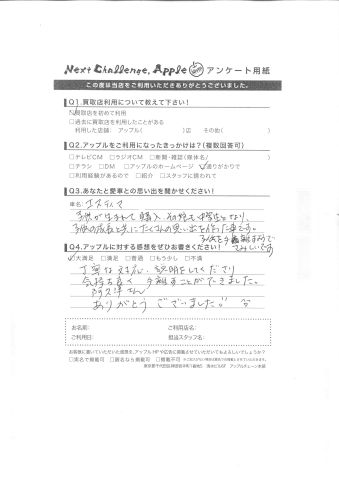 Next Challenge, Apple アンケート用紙
この度は当店をご利用いただきありがとうございました。
Q1.買取店利用について教えて下さい！
☑買取店を初めて利用
□過去に買取店を利用したことがある
利用した店舗: アップル( )店 その他( )
Q2.アップルをご利用になったきっかけは？(複数回答可)
□テレビCM □ラジオCM □新聞・雑誌(媒体名/ )
□チラシ □DM □アップルのホームページ ☑通りがかりで
□利用経験があるので □紹介 □スタッフに誘われて
Q3.あなたと愛車との思い出を聞かせください！
車名: エスティマ
子供が生まれて購入、 中学生となり、
子供の成長と共にたくさんの思い出を作った車です。
手離すようで
さみしいです
Q4.アップルに対する感想をぜひお書きください！
☑大満足 □満足 □普通 □もう少し □不満
丁寧な対応、説明をしてくださり
気持ち良く手離すことができました。
阿久津さん
ありがとうございました。
お名前: ご利用店名:
ご利用日: 担当スタッフ名:
お客様に書いていただいた感想を、アップルHPや広告に掲載させていただいてもよろしいでしょうか？
□実名で掲載可 □匿名なら掲載可 □掲載不可